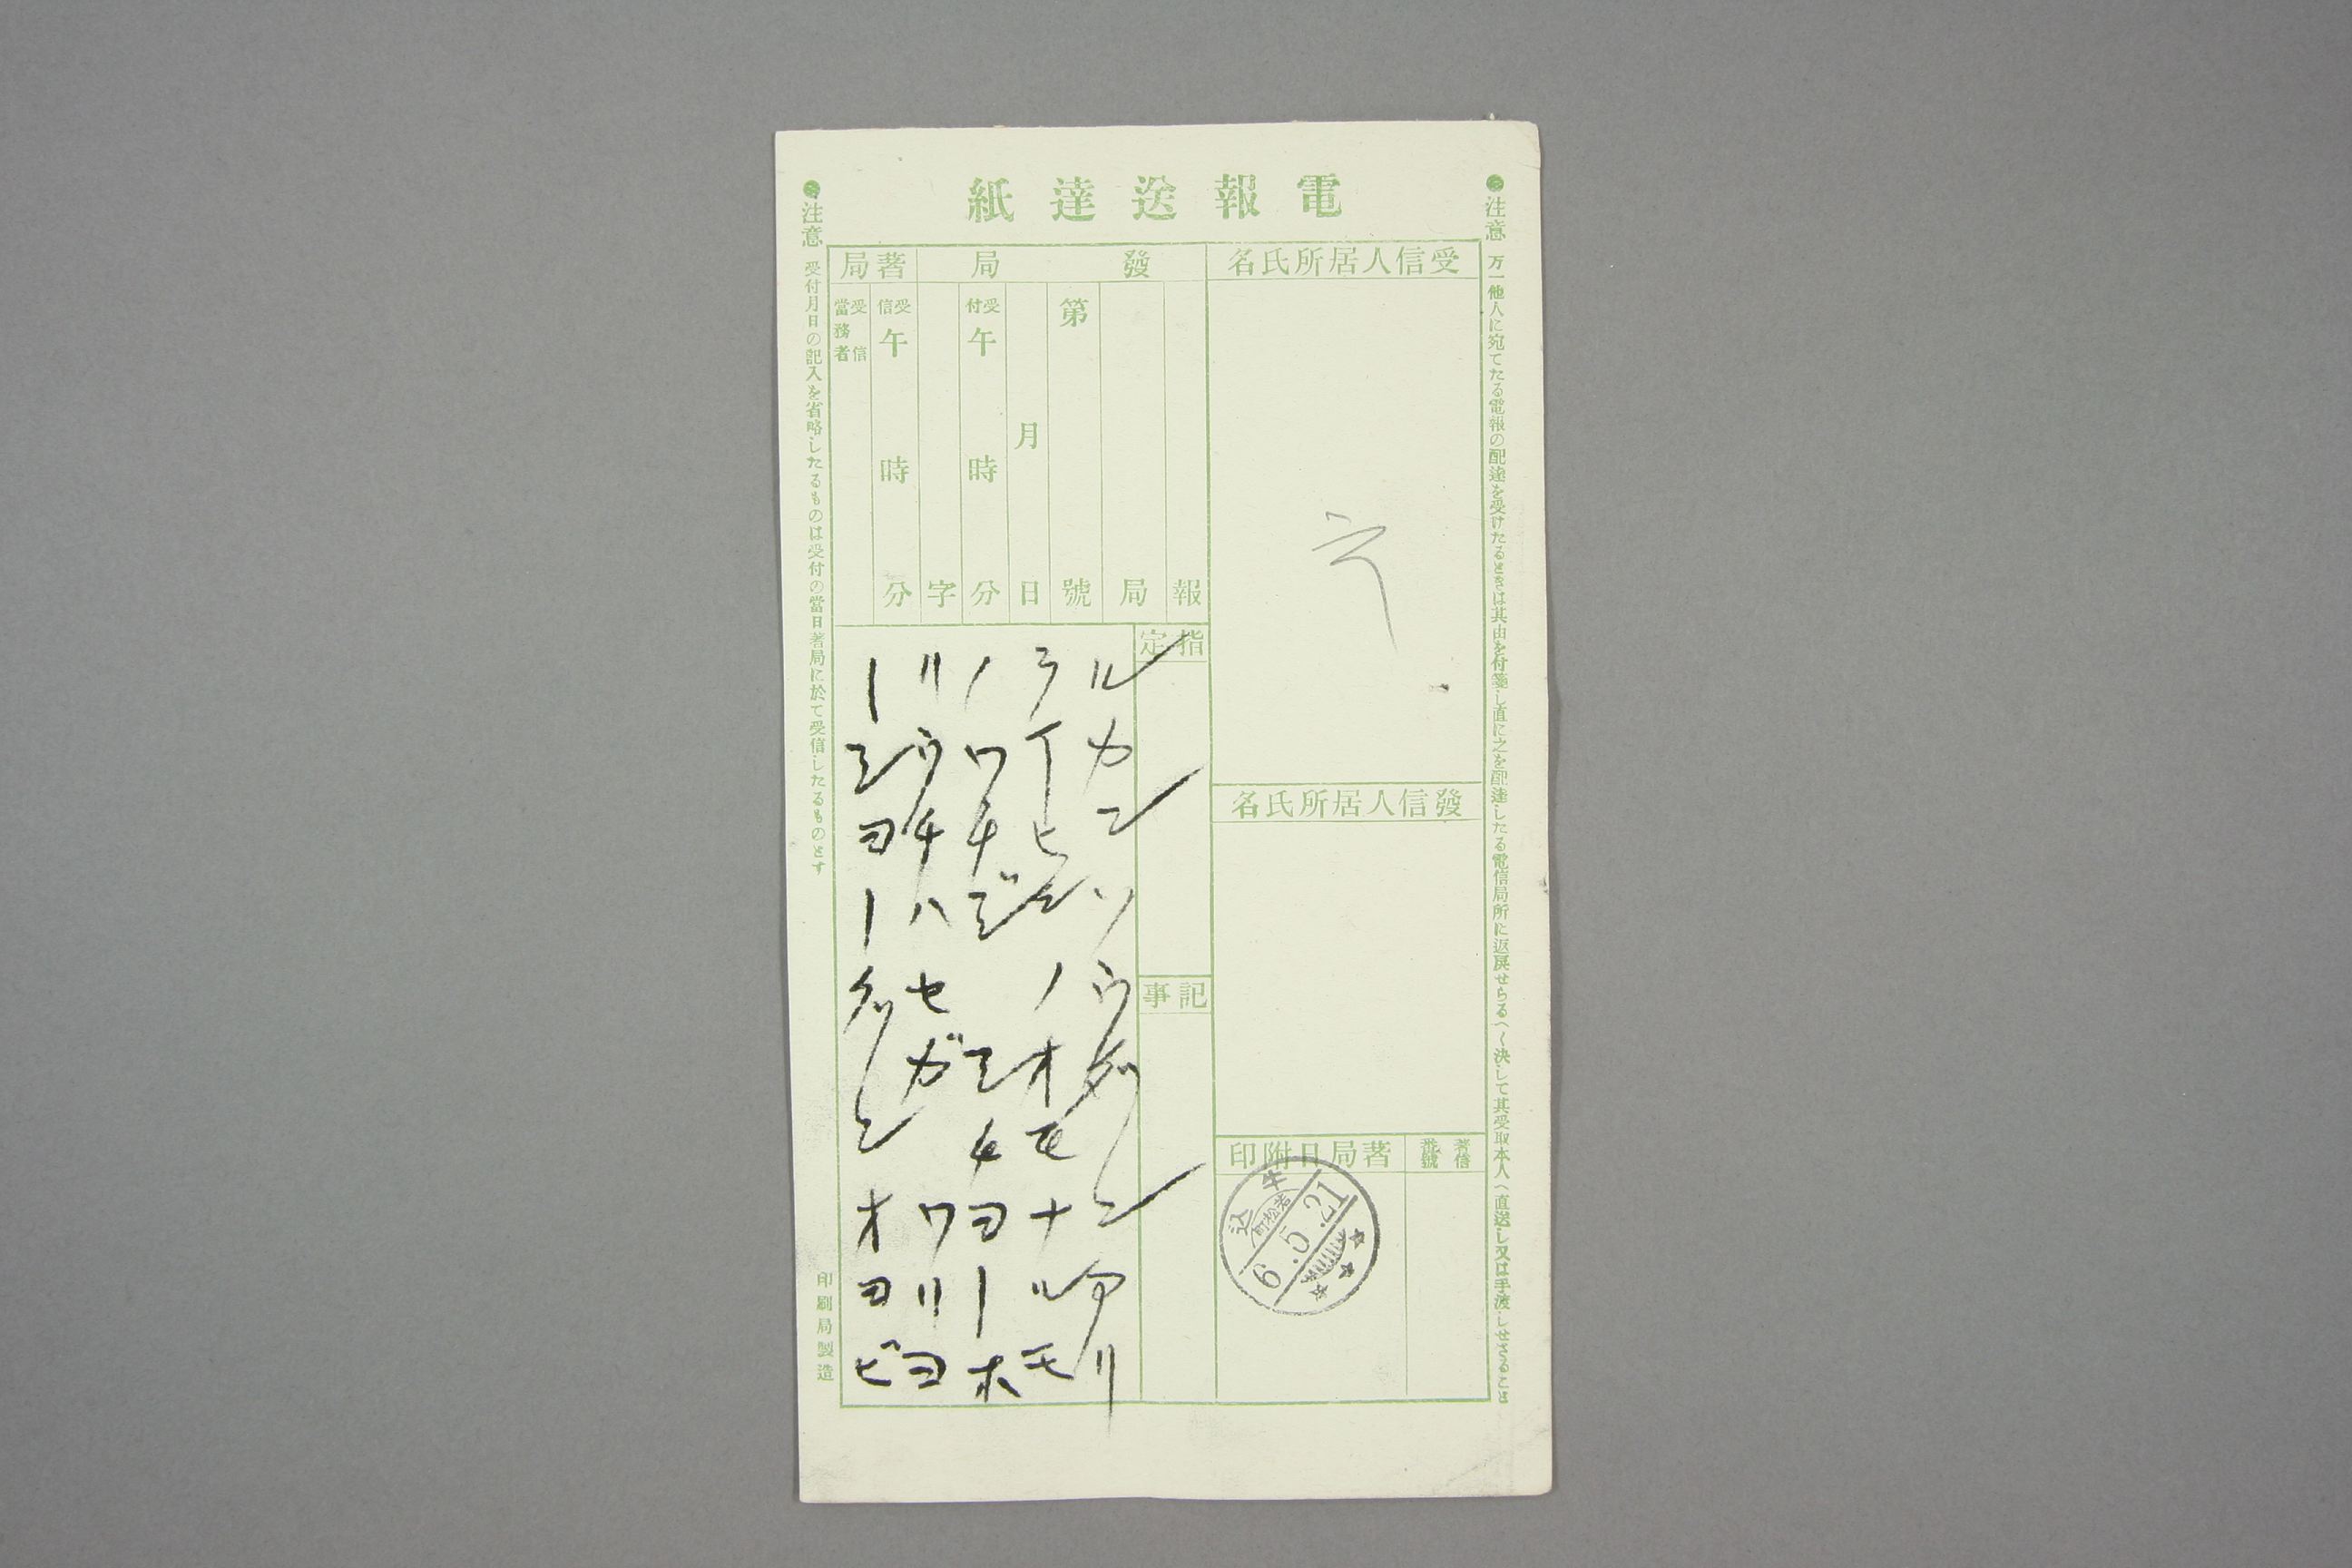 電報送達紙
●注意 万一他人に宛てたる電報の配達を受けたるときは其由を付箋し直に之を配達したる電信局所に返戻せらるへく決して其受取本人へ直送し又は手渡しせさること
受信人居所氏名
發信人居所氏名
著信番號
著局日附印
牛込
若松町
6.5.21
發局
報
局
第 號
月 日
受付 午 時 分
字
著局
受信 午 時 分
受信當務者
指定
記事
ルカンソウダンアリ
ライヒンノオモナルモ
ノワチジ シチヨーホ
リウチハセガワリヨ
ーシヨーグンオヨビ
●注意 受付月日の記入を省略したるものは受付の當日著局に於て受信したるものとす
印刷局製造